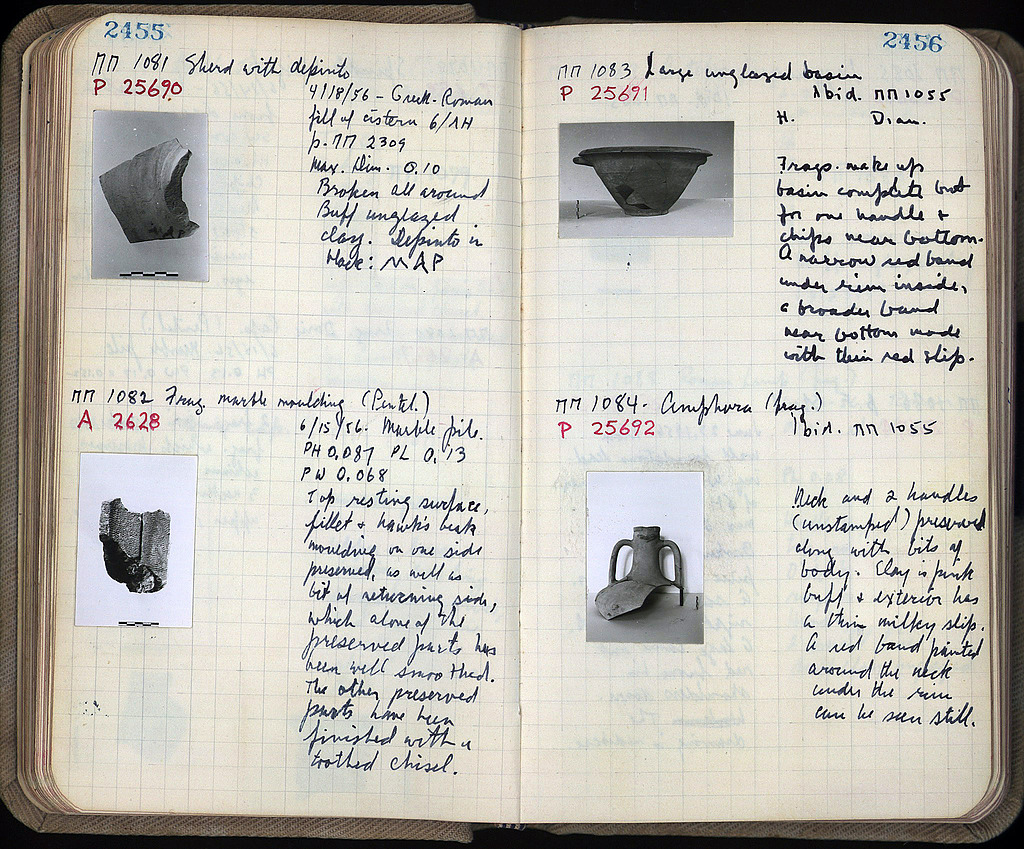 2455
ΠΠ 1081 Sherd with depinto
P 25690
4/18/56 - Greek-Roman
fill of cistern 6/ΛH
p. ΠΠ 2309
Max. Dim. 0.10
Broken all around
Buff unglazed
clay. Depinto in
black: MAP
ΠΠ 1082 Frag. marble moulding (Pentel.)
A 2628
6/15/56. Marble pile.
PH 0.087 PL 0.13
PW 0.068
Top resting surface,
fillet & hawk's beak
moulding on one side
preserved, as well as
bit of returning side,
which alone of the
preserved parts has
been well smoothed.
The other preserved
parts have been
finished with a
toothed chisel.
2456
ΠΠ 1083 Large unglazed basin
P 25691
Ibid. ΠΠ 1055
H. Diam.
Frags. make up
basin complete but
for one handle &
chips near bottom.
A narrow red band
under rim inside,
a broader band
near bottom made
with thin red slip.
ΠΠ 1084. Amphora (frag.)
P 25692
Ibid. ΠΠ 1055
Neck and 2 handles
(unstamped) preserved
along with bits of
body. Clay is pink
buff & exterior has
a thin milky slip.
A red band painted
around the neck
under the rim
can be seen still.